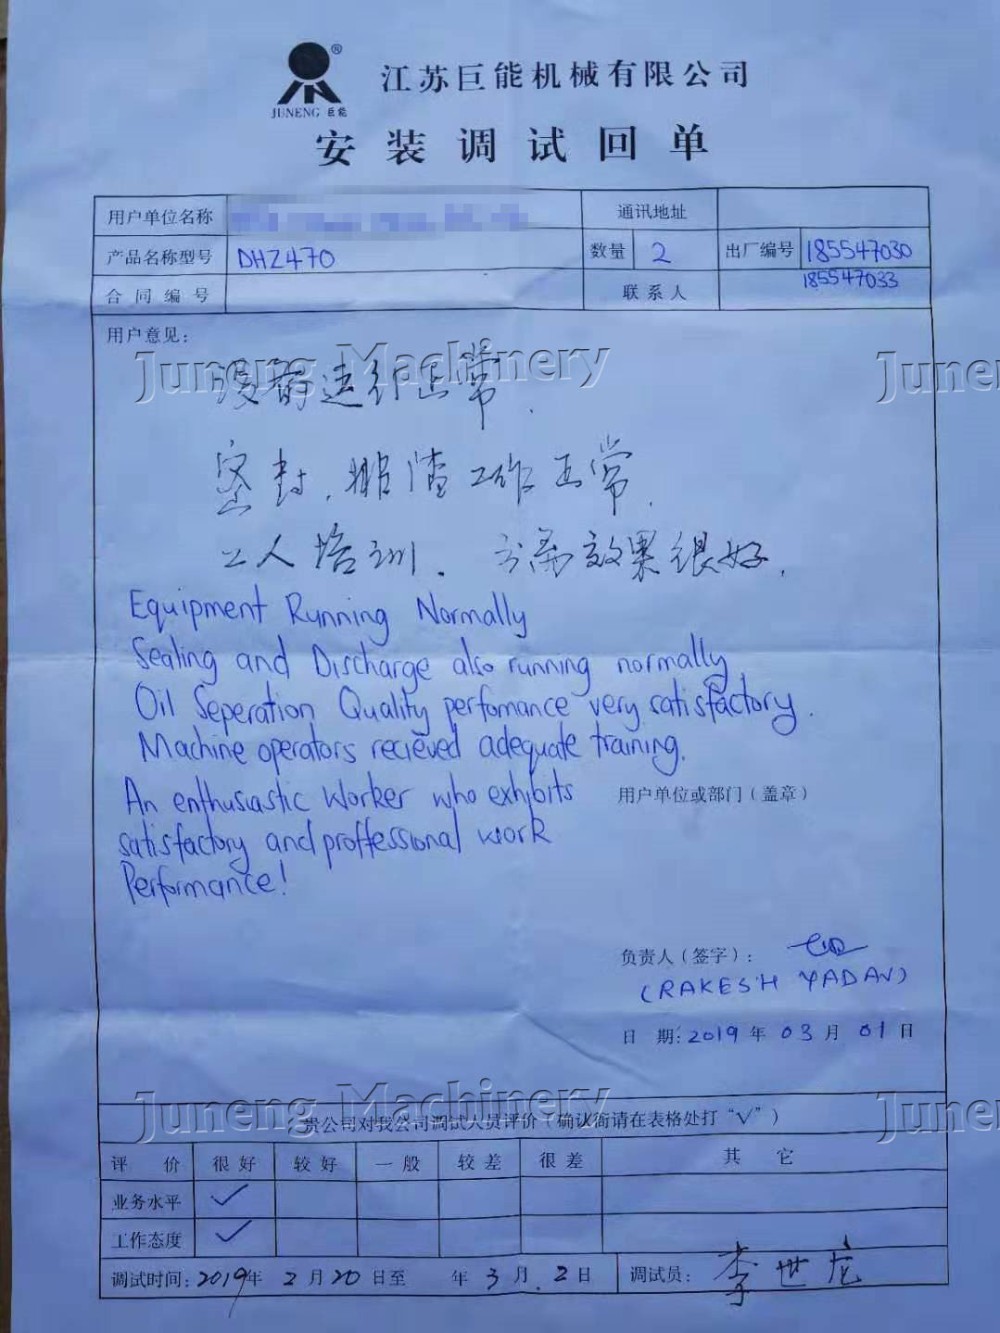 江苏巨能机械有限公司
JUNENG 巨能 ®
安装调试回单
用户单位名称 通讯地址
产品名称型号 DHZ470 数量 2 出厂编号 185547030
185547033
合同编号 联系人
用户意见:
设备运行正常.
密封,排渣工作正常.
工人培训. 分离效果很好.
Equipment Running Normally
Sealing and Discharge also running normally
Oil Seperation Quality perfomance very satisfactory.
Machine operators recieved adequate training.
An enthusiastic Worker who exhibits
satisfactory and proffessional work
Performance!
用户单位或部门(盖章)
负责人(签字):
(RAKESH YADAV)
日 期: 2019年 03月 01日
贵公司对我公司调试人员评价(确认后请在表格处打“√”)
评价 很好 较好 一般 较差 很差 其它
业务水平 ✓
工作态度 ✓
调试时间: 2019年 2月 20日至 年 3月 2日 调试员: 李世虎
Juneng Machinery
Juneng Machinery
June
June